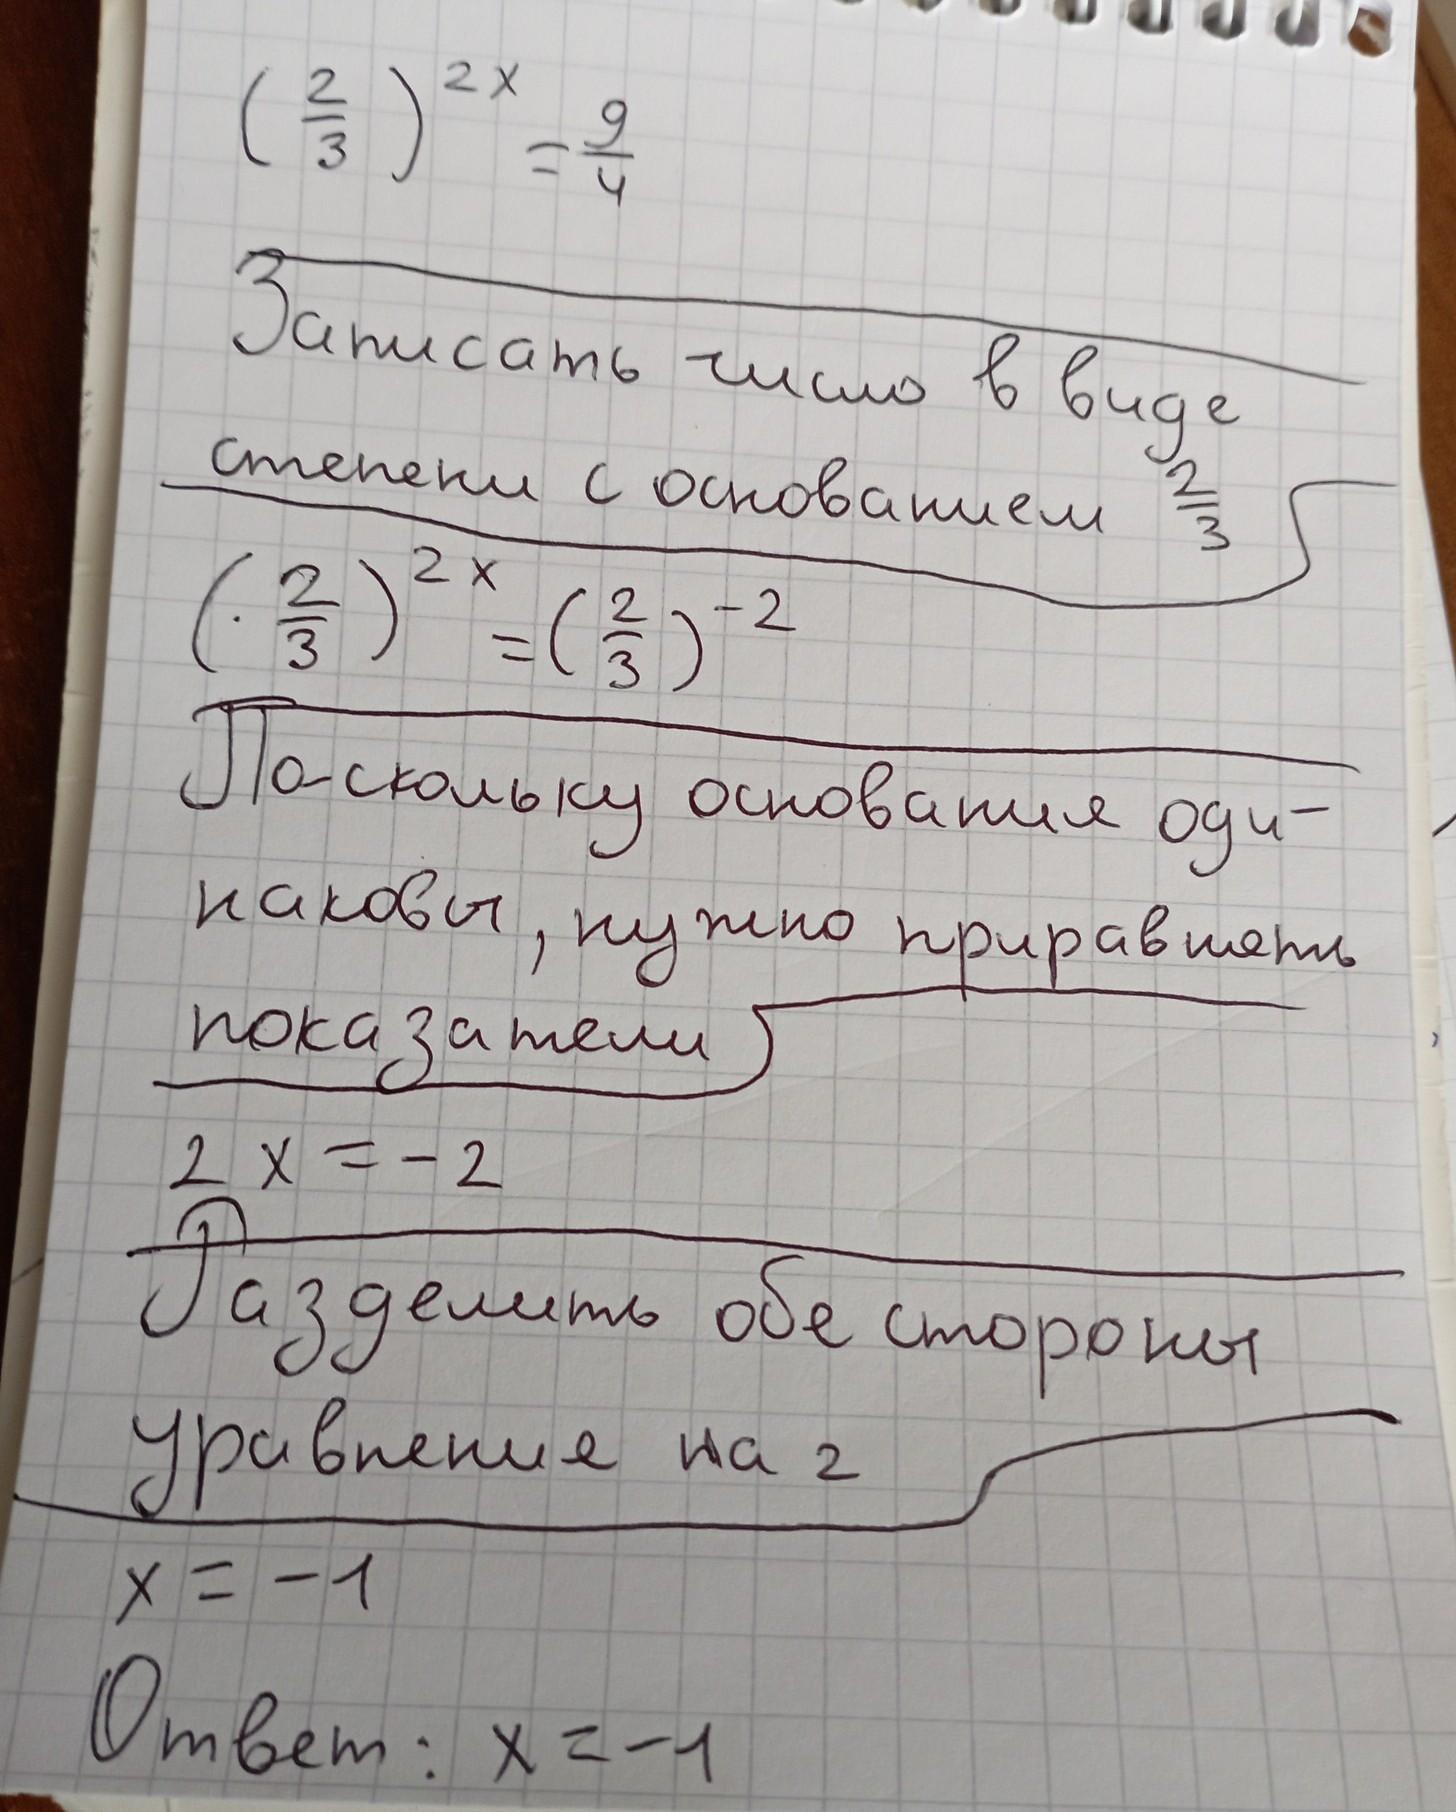 (2/3)^2x = 9/4
Записать число в виде
степени с основанием 2/3
(2/3)^2x = (2/3)^-2
Поскольку основания оди-
наковы, нужно приравнять
показатели
2x = -2
Разделить обе стороны
уравнение на 2
x = -1
Ответ: x = -1